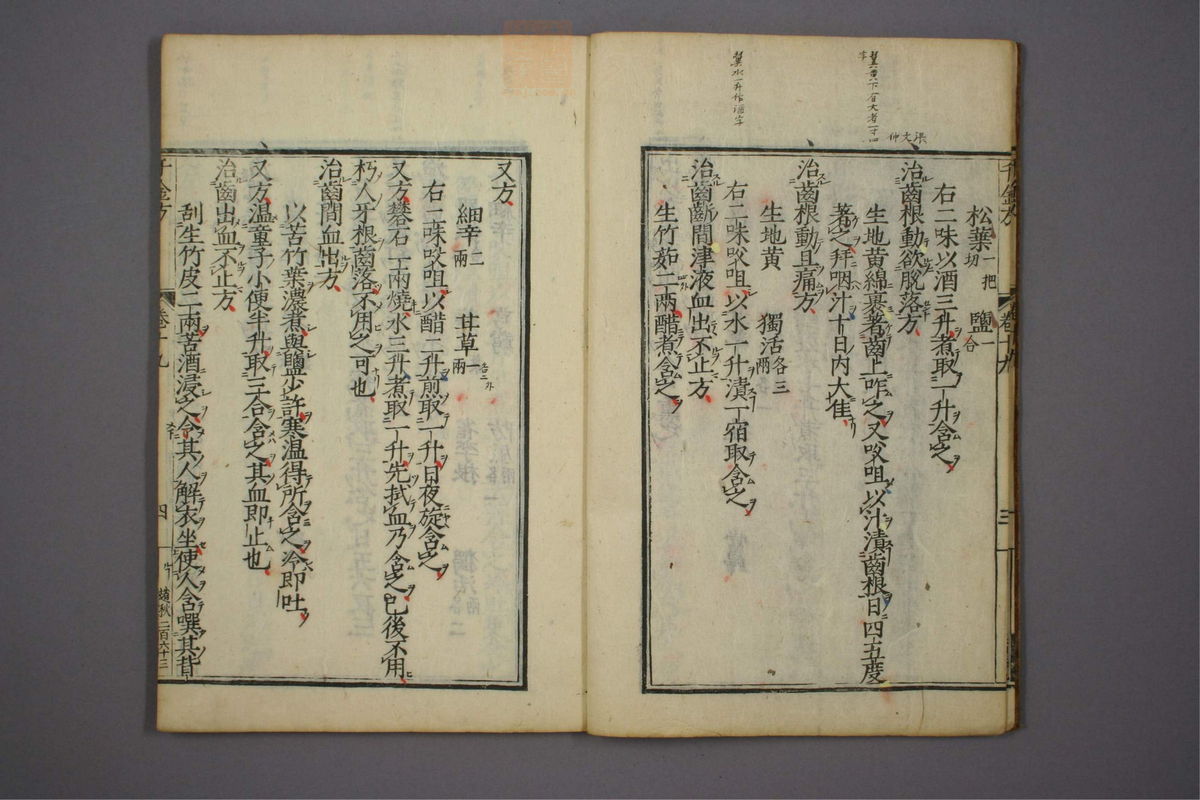 松葉一把切 鹽一合
右二味以酒三升煮取一升含之
治齒根動欲脫落方
生地黃綿裹著齒上咋之又㕮咀以汁漬齒根日四五度
著之并咽汁十日內大佳
治齒根動且痛方
生地黃 獨活各三兩
右二味㕮咀以水一升漬一宿取含之
治齒齗間津液血出不止方
生竹茹二兩醋煮含之
千金方 卷十九 三
又方
細辛二兩 甘草一兩
右二味㕮咀以醋二升煎取一升日夜旋含之
又方礬石一兩燒水三升煮取一升先拭血乃含之已後不用
朽人牙根齒落不用之可也
治齒間血出方
以苦竹葉濃煮與鹽少許寒溫得所含之冷即吐
又方溫童子小便半升取三合含之其血即止也
治齒出血不止方
刮生竹皮二兩苦酒浸之令其人解衣坐使人含噀其背
千金方 卷十九 四